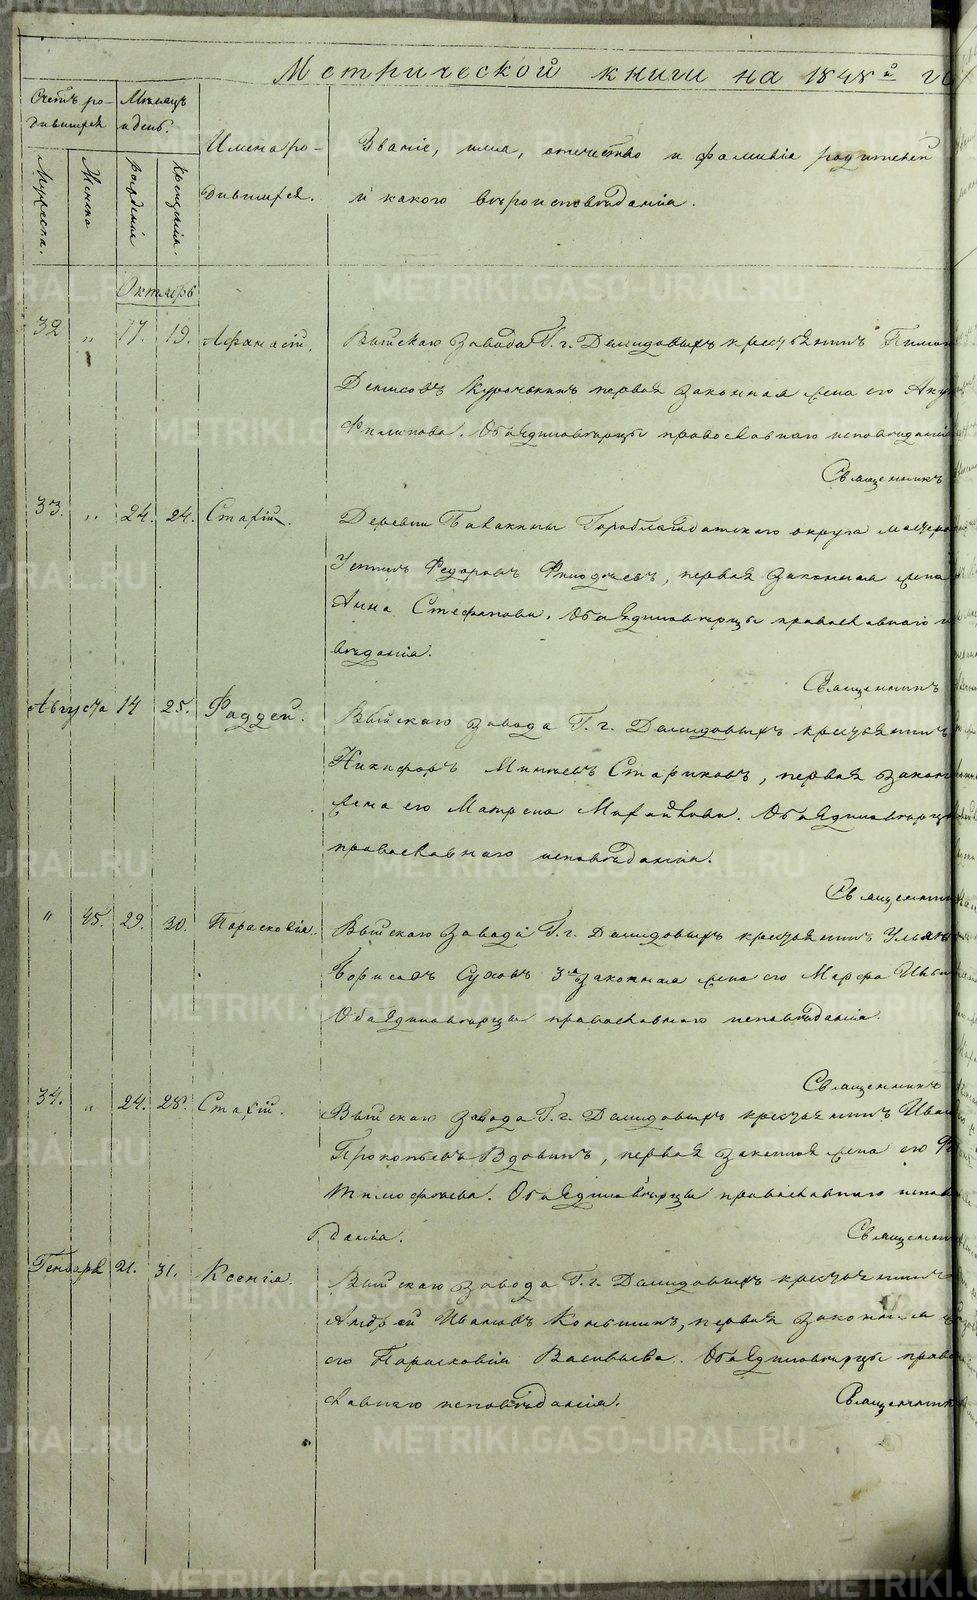 Метрической книги на 1848й го
Счетъ ро- Мѣсяцъ
дившихся и день.
Имена ро- Званіе, имя, отчество и фамилія родителей
дившихся. и какого вѣроисповѣданія.
Мужеска. Женска рожденія крещенія.
Октябрь
32 " 17. 19. Афанасій. Выйскаго завода Г. г. Демидовыхъ крестьянинъ Пимен
Денисовъ Курочкинъ первая законная жена его Аку
Филипова. Оба единовѣрцы православнаго исповѣданія
Священникъ
33. " 24. 24. Стахій. Деревни Балакины Гороблагодатскаго округа мастеро
Устинъ Федоровъ, первая законная жена
Анна Стефанова. Оба единовѣрцы православнаго и
вѣданія.
Священникъ
Августа 14 25. Фаддей. Выйскаго завода Г. г. Демидовыхъ крестьянинъ
Никифоръ Стариковъ, первая закон
жена его Матрена Михайлова. Оба единовѣрцы
православнаго исповѣданія.
Священник
" 45. 29. 30. Парасковія. Выйскаго завода Г. г. Демидовыхъ крестьянинъ Ульян
Борисовъ Суховъ 3я законная жена его Марфа Иван
Оба единовѣрцы православнаго исповѣданія.
Священникъ
34. " 24. 28. Стахій. Выйскаго завода Г. г. Демидовыхъ крестьянинъ Иван
Прокопьевъ Вдовинъ, первая законная жена его
Тимофѣева. Оба единовѣрцы православнаго испов
данія. Священни
Генваря 21. 31. Ксенія. Выйскаго завода Г. г. Демидовыхъ крестьянинъ
Андрей Ивановъ Коньшинъ, первая законная ж
его Парасковія Васильева. Оба единовѣрцы право
славнаго исповѣданія. Священник
METRIKI.GASO-URAL.RU